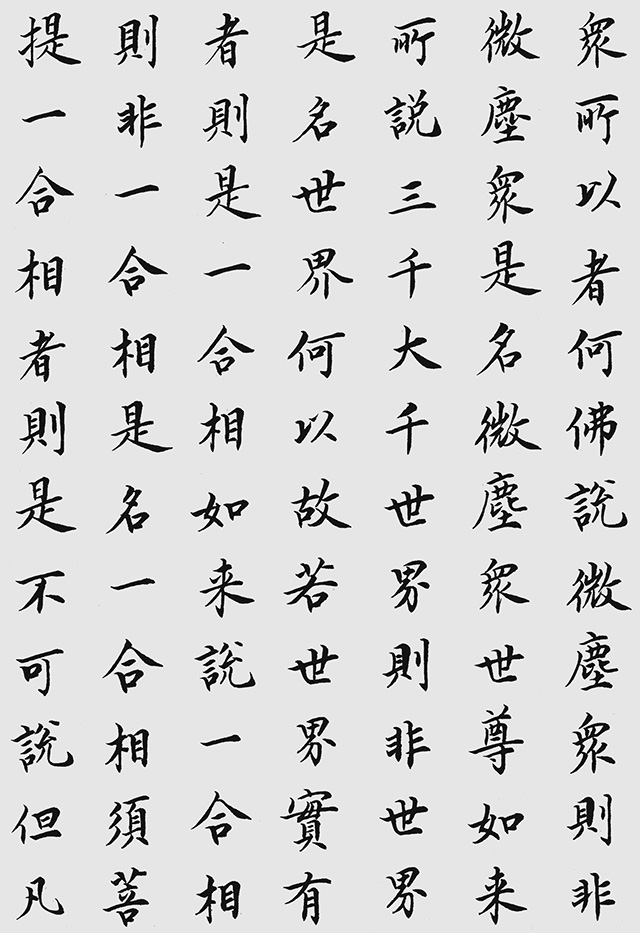 眾所以者何佛說微塵眾則非
微塵眾是名微塵眾世尊如来
所説三千大千世界則非世界
是名世界何以故若世界實有
者則是一合相如来說一合相
則非一合相是名一合相須菩
提一合相者則是不可說但凡